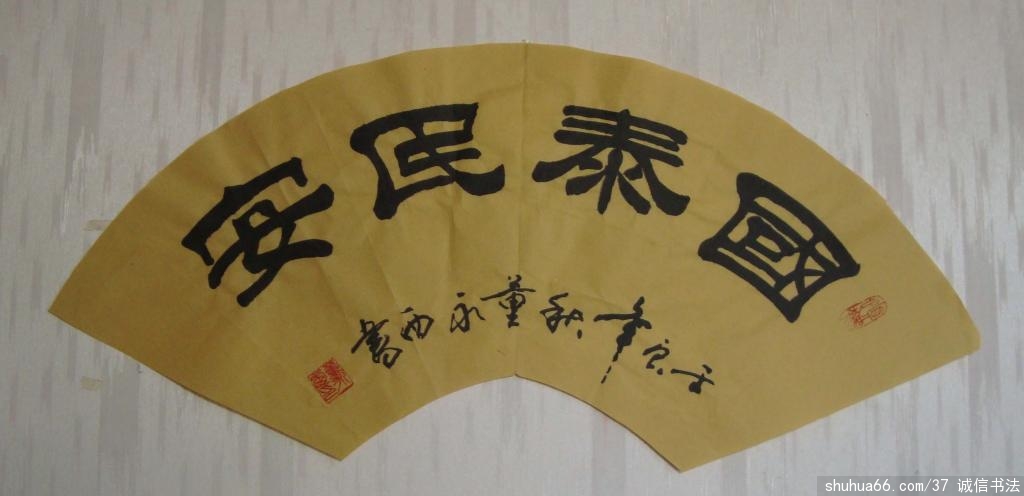 國泰民安
壬辰年秋董永西書
shuhua66.com/37 诚信书法